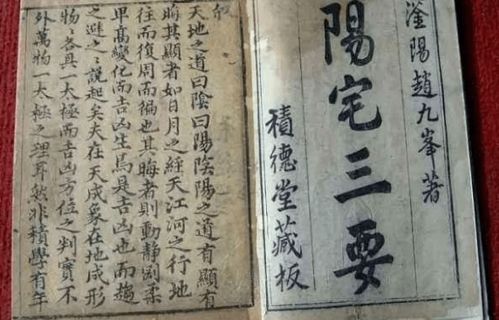 滏陽趙九峯著
陽宅三要
積德堂藏板
天地之道曰陰曰陽陰陽之道有顯有
晦其顯者如日月之經天江河之行地
往而復周而徧也其晦者則動靜剛柔
卑高變化而吉凶生焉是吉凶也而趨
之避之說起矣夫在天成象在地成形
物各具一太極而吉凶方位之判實不
外萬物一太極之理耳然非積學有年